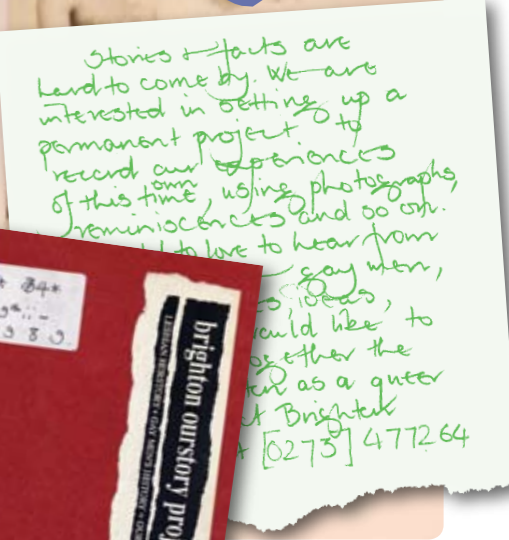 Stories + facts are
hard to come by. We are
interested in setting up a
permanent project to
record our experiences
own
of this time, using photographs,
reminiscences and so on.
to love to hear from
gay men,
ideas,
would like to
together the
as a queer
Brighton
[0273] 477264
brighton ourstory pro
LESBIAN HERSTORY • GAY MEN'S HISTORY • OUR
* 84*
989